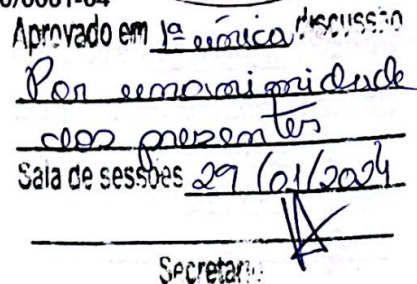 0001-04
Aprovado em 1ª única discussão
Por unanimidade
dos presentes
Sala de sessões 29/01/2024
Secretario